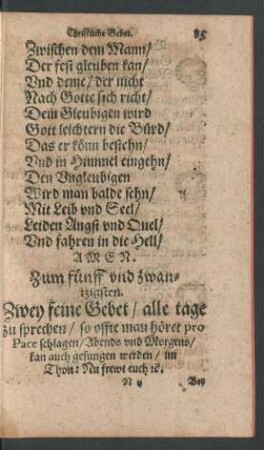 Christliche Gebet. 85
Zwischen dem Mann/
Der fest gleuben kan/
Vnd deme/ der nicht
Nach Gotte sich richt/
Dem Gleubigen wird
Gott leichtern die Bürd/
Das er könn bestehn/
Vnd in Himmel eingehn/
Den Vngleubigen
Wird man balde sehn/
Mit Leib vnd Seel/
Leiden Angst vnd Quel/
Vnd fahren in die Hell/
AMEN.
Zum fünff vnd zwan-
tzigsten.
Zwey feine Gebet/ alle tage
zu sprechen/ so offte man höret pro
Pace schlagen/ Abends vnd Morgens/
kan auch gesungen werden/ im
Thon: Nu frewt euch ꝛc.
Bey